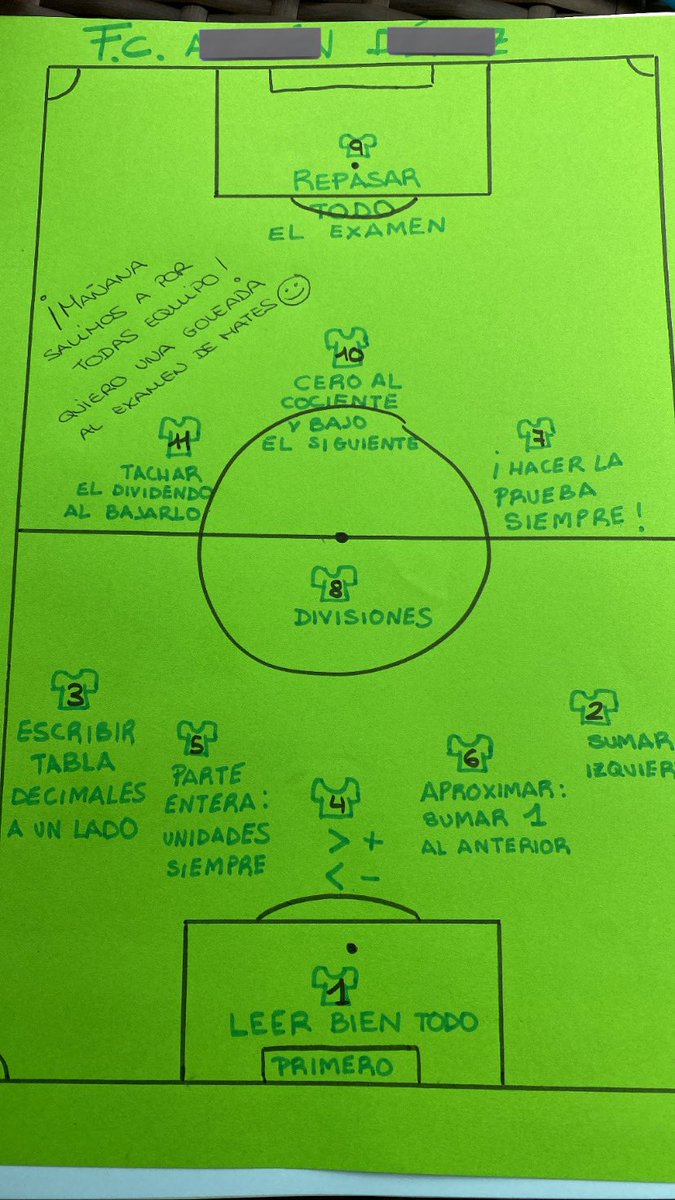 F.C.
9
REPASAR
TODO
EL EXAMEN
¡MAÑANA
SALIMOS A POR
TODAS EQUIPO!
QUIERO UNA GOLEADA
AL EXAMEN DE MATES
10
CERO AL
COCIENTE
Y BAJO
EL SIGUIENTE
11
TACHAR
EL DIVIDENDO
AL BAJARLO
7
¡HACER LA
PRUEBA
SIEMPRE!
8
DIVISIONES
3
ESCRIBIR
TABLA
DECIMALES
A UN LADO
5
PARTE
ENTERA:
UNIDADES
SIEMPRE
4
> +
< -
6
APROXIMAR:
SUMAR 1
AL ANTERIOR
2
SUMAR
IZQUIER
1
LEER BIEN TODO
PRIMERO